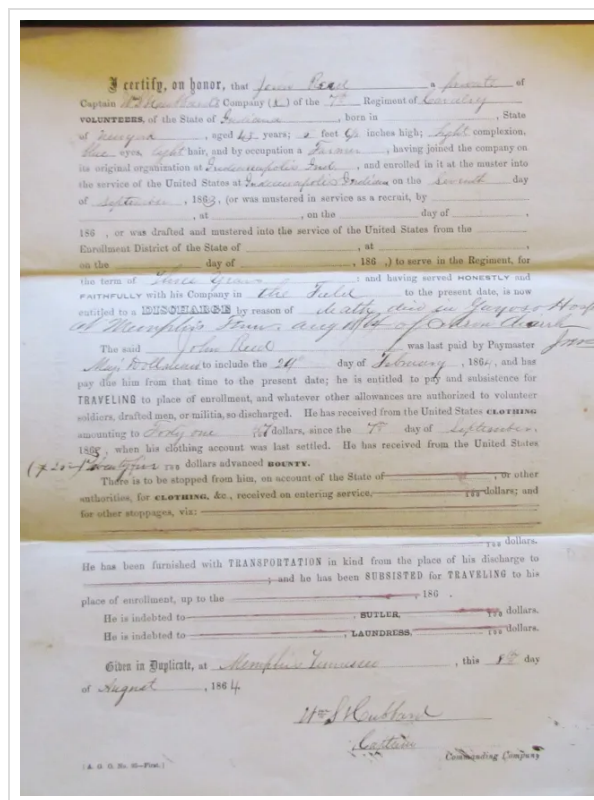 I certify, on honor, that John Reed a private of
Captain Company ( ) of the 7th Regiment of Cavalry
VOLUNTEERS, of the State of Indiana, born in , State
of , aged years; 5 feet inches high; light complexion,
blue eyes, light hair, and by occupation a Farmer, having joined the company on
its original organization at Indianapolis Ind, and enrolled in it at the muster into
the service of the United States at Indianapolis on the Seventh day
of September, 1863, (or was mustered in service as a recruit, by
, at , on the day of ,
186 , or was drafted and mustered into the service of the United States from the
Enrollment District of the State of , at ,
on the day of , 186 ,) to serve in the Regiment, for
the term of Three years : and having served HONESTLY and
FAITHFULLY with his Company in the Field to the present date, is now
entitled to a DISCHARGE by reason of death, died in
at Memphis Tenn, of
The said John Reed was last paid by Paymaster
Maj. to include the day of February, 1864, and has
pay due him from that time to the present date; he is entitled to pay and subsistence for
TRAVELING to place of enrollment, and whatever other allowances are authorized to volunteer
soldiers, drafted men, or militia, so discharged. He has received from the United States CLOTHING
amounting to Forty one dollars, since the 7th day of September,
1863, when his clothing account was last settled. He has received from the United States
dollars advanced BOUNTY.
There is to be stopped from him, on account of the State of , or other
authorities, for CLOTHING, &c., received on entering service, dollars; and
for other stoppages, viz:
dollars.
He has been furnished with TRANSPORTATION in kind from the place of his discharge to
; and he has been SUBSISTED for TRAVELING to his
place of enrollment, up to the , 186 .
He is indebted to , SUTLER, dollars.
He is indebted to , LAUNDRESS, dollars.
Given in Duplicate, at Memphis Tennessee, this day
of August, 1864.
Wm S Hubbard
Captain
Commanding Company
(A. G. O. No. –First.)